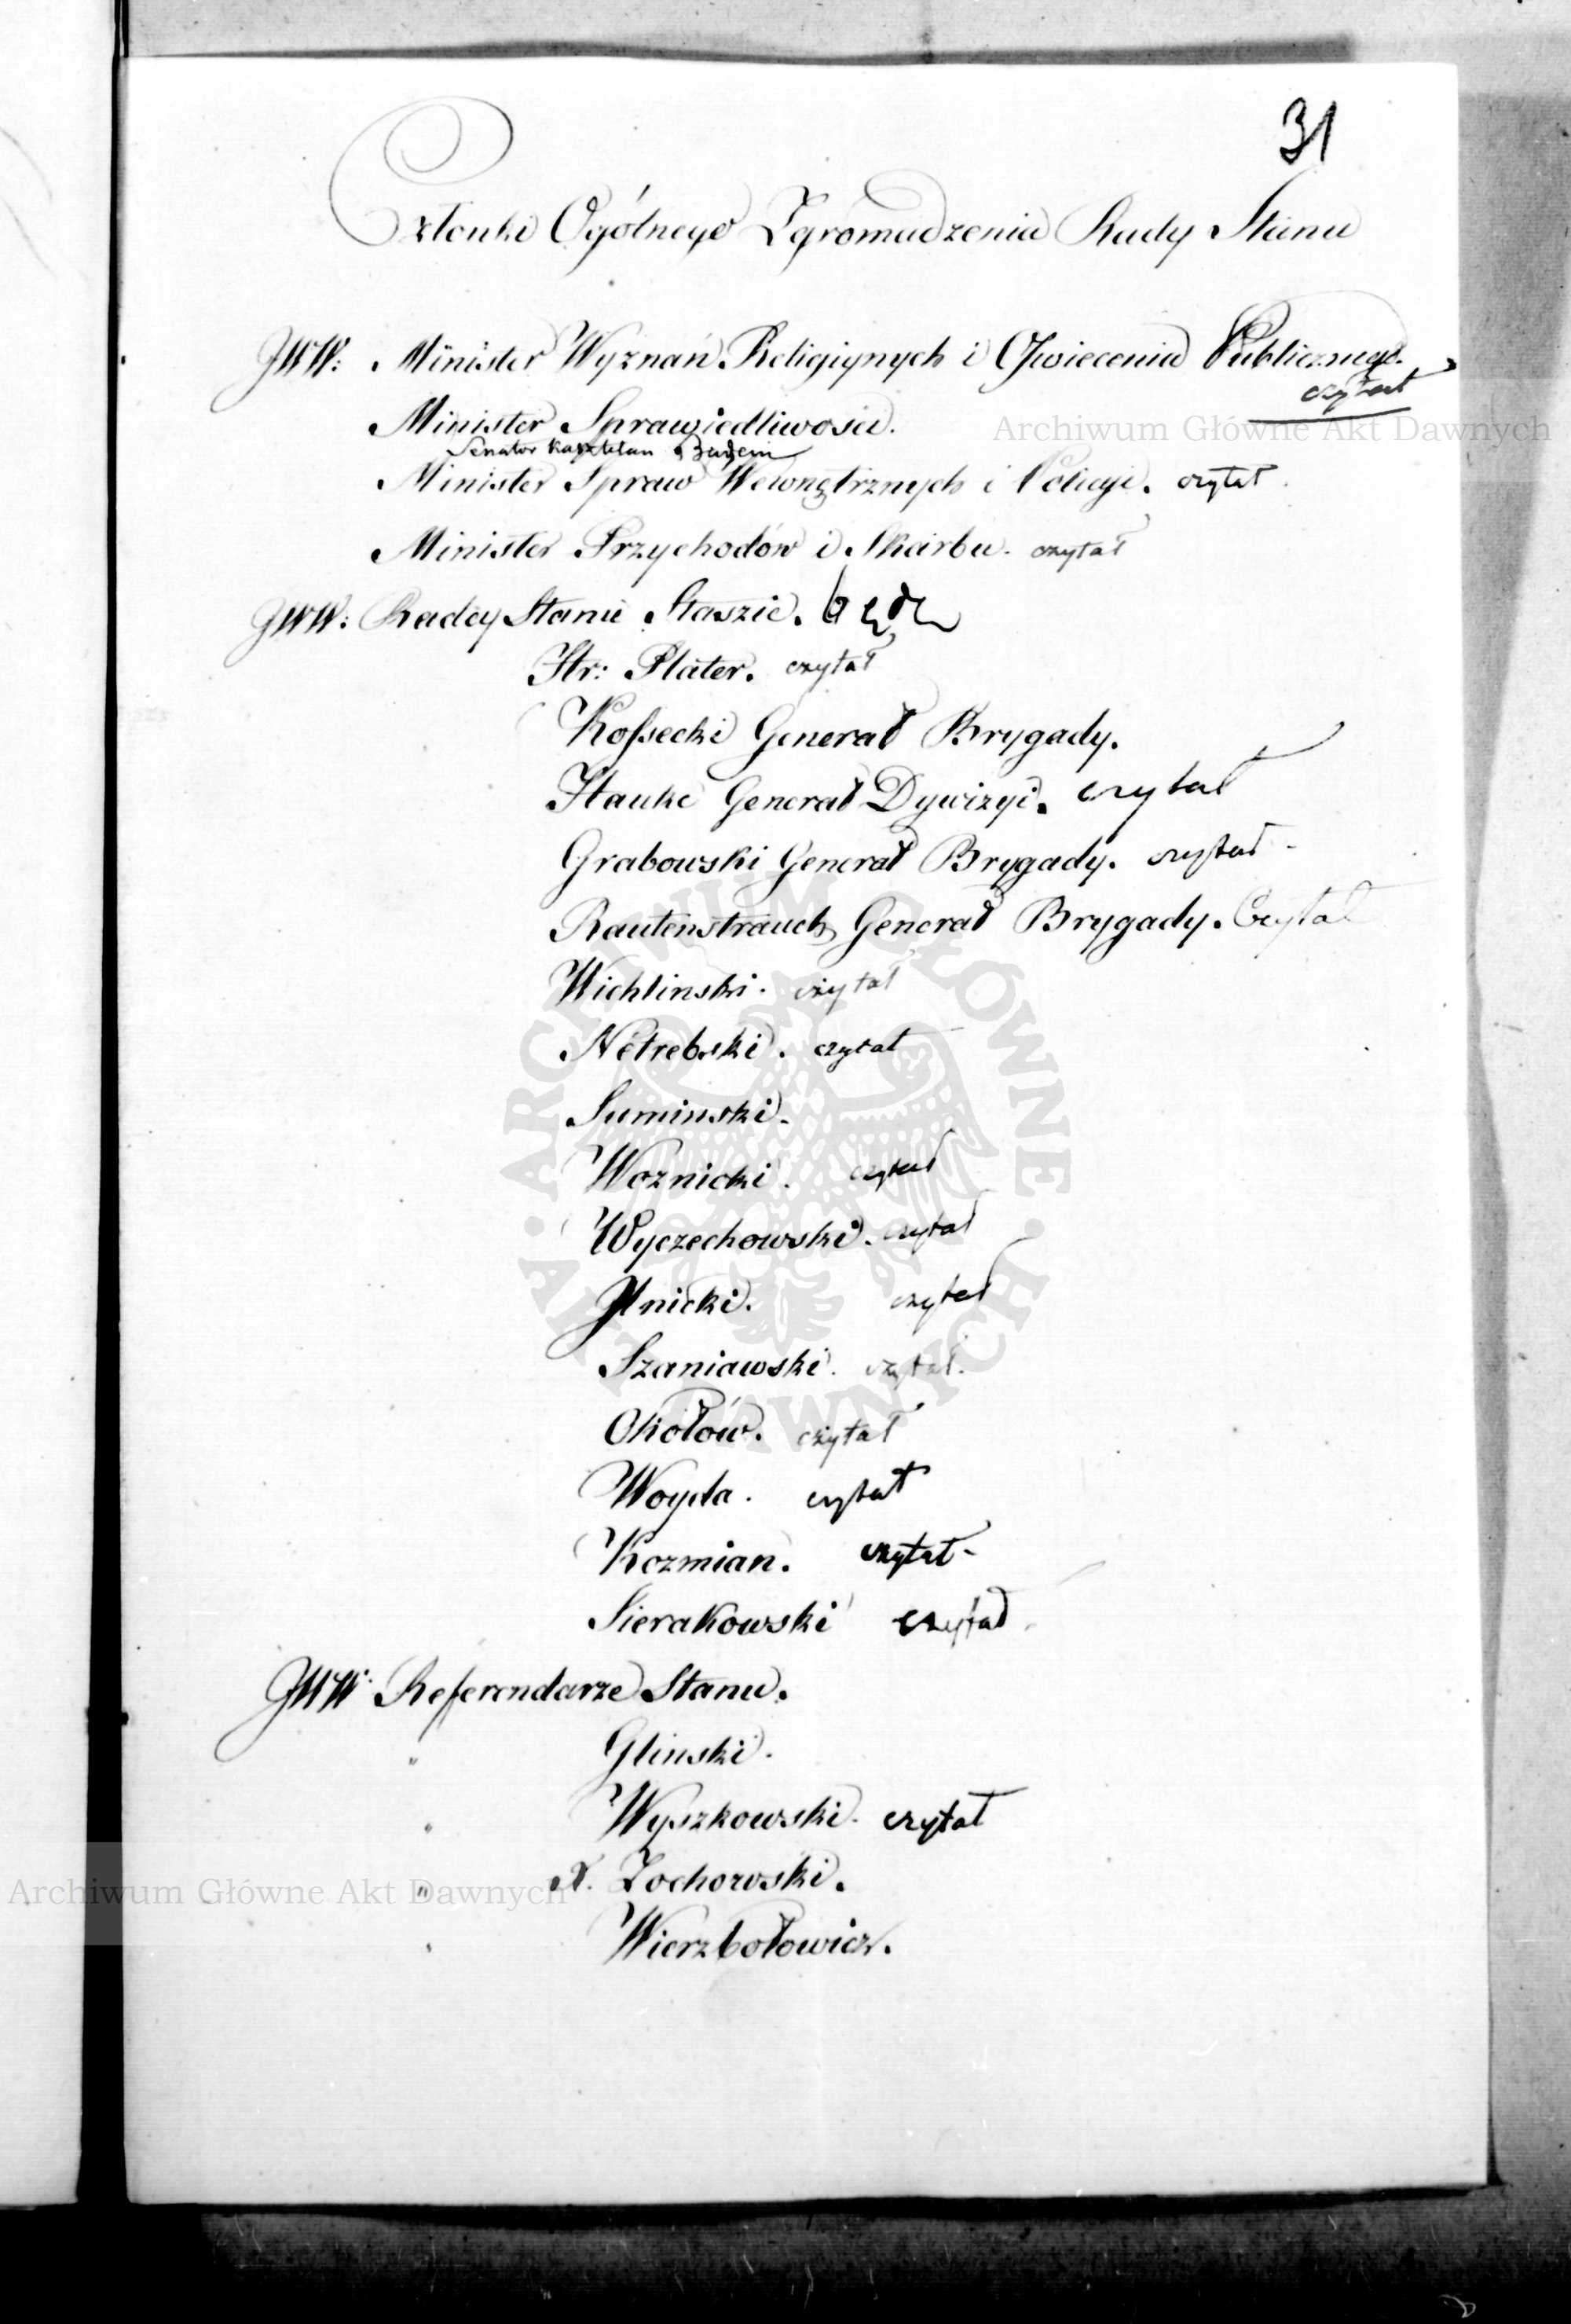 31
Członki Ogólnego Zgromadzenia Rady Stanu
JWW: Minister Wyznań Religiynych i Oświecenia Publicznego.
czytał
Archiwum Główne Akt Dawnych
Minister Sprawiedliwości.
Senator Kasztelan
Minister Spraw Wewnętrznych i Policyi. czytał
Minister Przychodów i Skarbu. czytał
JWW: Radcy Stanu Staszic.
Hr: Plater. czytał
Kossecki Generał Brygady.
Hauke Generał Dywizyi. czytał
Grabowski Generał Brygady. czytał
Rautenstrauch Generał Brygady. Czytał
Wichlinski. czytał
Netrebski. czytał
Suminski.
Woznicki. czytał
Wyczechowski. czytał
Jłnicki. czytał
Szaniawski. czytał.
Okołów. czytał
Woyda. czytał
Kozmian. czytał
Sierakowski czytał
JWW Referendarze Stanu.
" Glinski.
" Wyszkowski. czytał
" X. Zochowski.
" Wierzbołowicz.
Archiwum Główne Akt Dawnych
ARCHIWUM GŁÓWNE AKT DAWNYCH